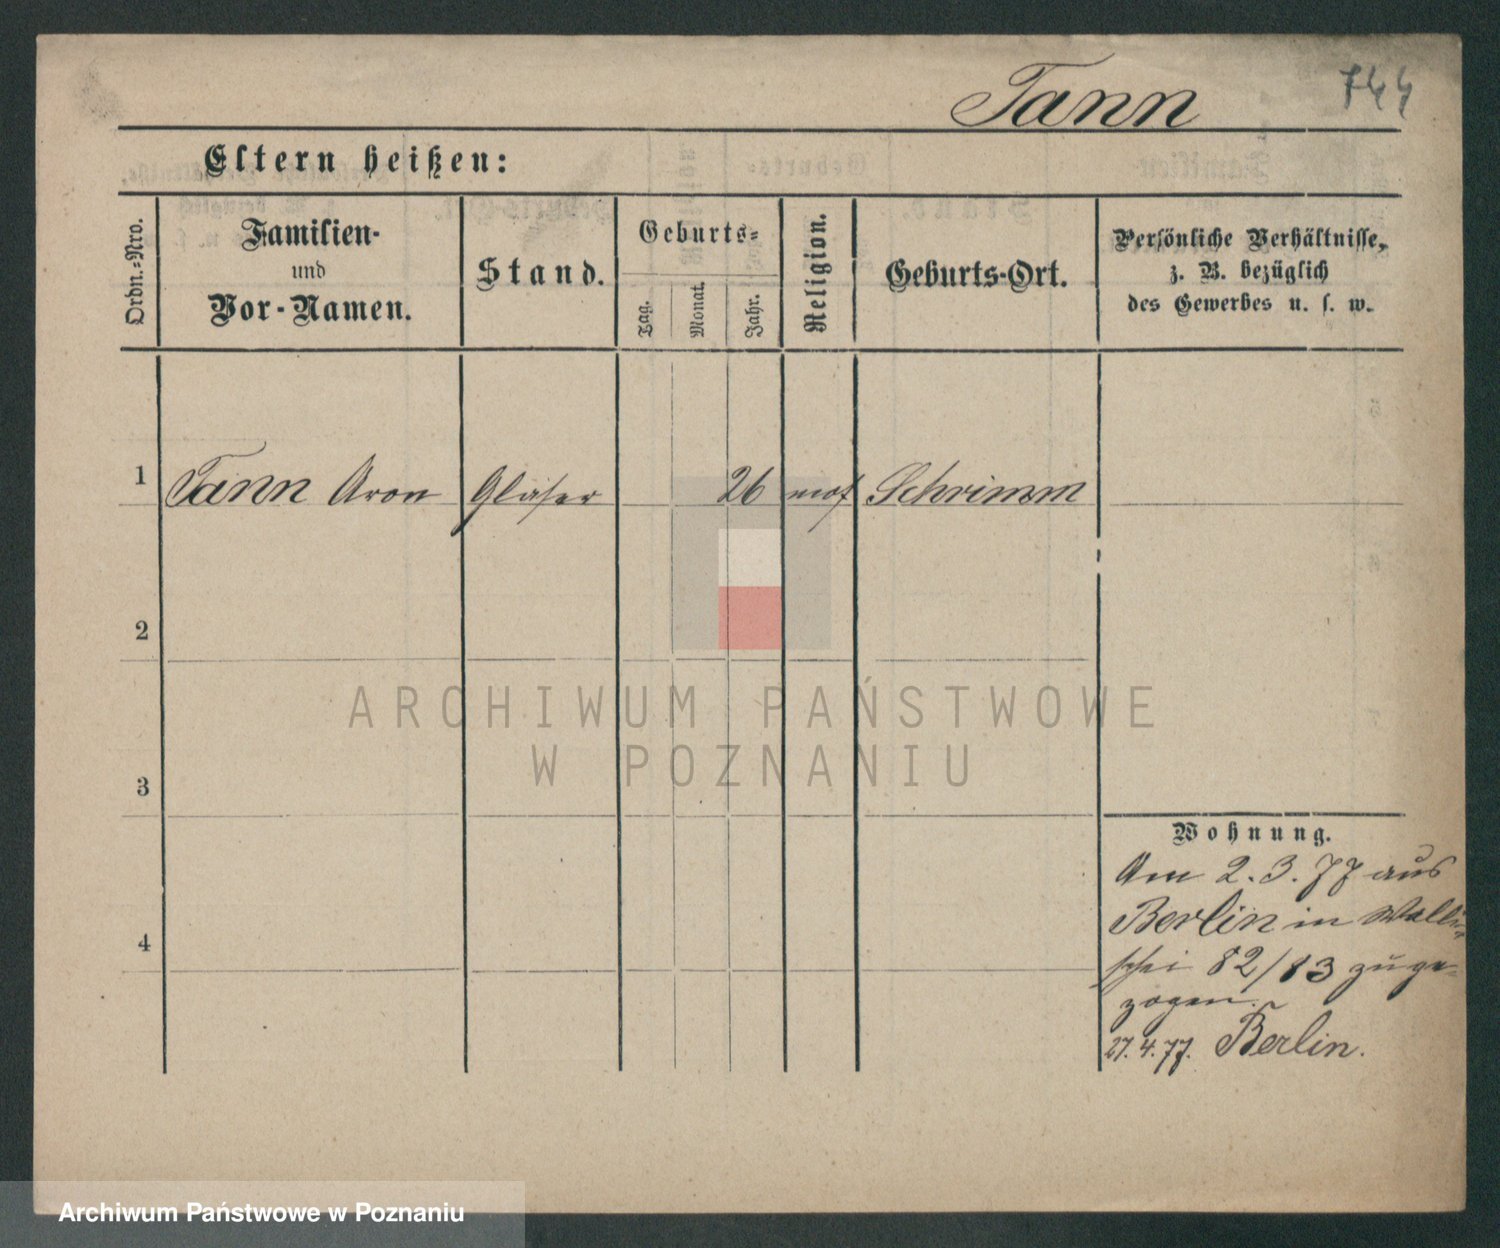 Tann 744
Eltern heißen:
Ordn.=Nro.
Familien-
und
Vor-Namen.
Stand.
Geburts=
Tag.
Monat.
Jahr.
Religion.
Geburts-Ort.
Persönliche Verhältnisse,
z. B. bezüglich
des Gewerbes u. s. w.
1 Tann Aron Gläser 26 mos Schrimm
2
3
4
Wohnung.
Am 2.3.77 aus
Berlin in Walli-
schei 82/83 zuge-
zogen.
27.4.77. Berlin.
ARCHIWUM PAŃSTWOWE
W POZNANIU
Archiwum Państwowe w Poznaniu